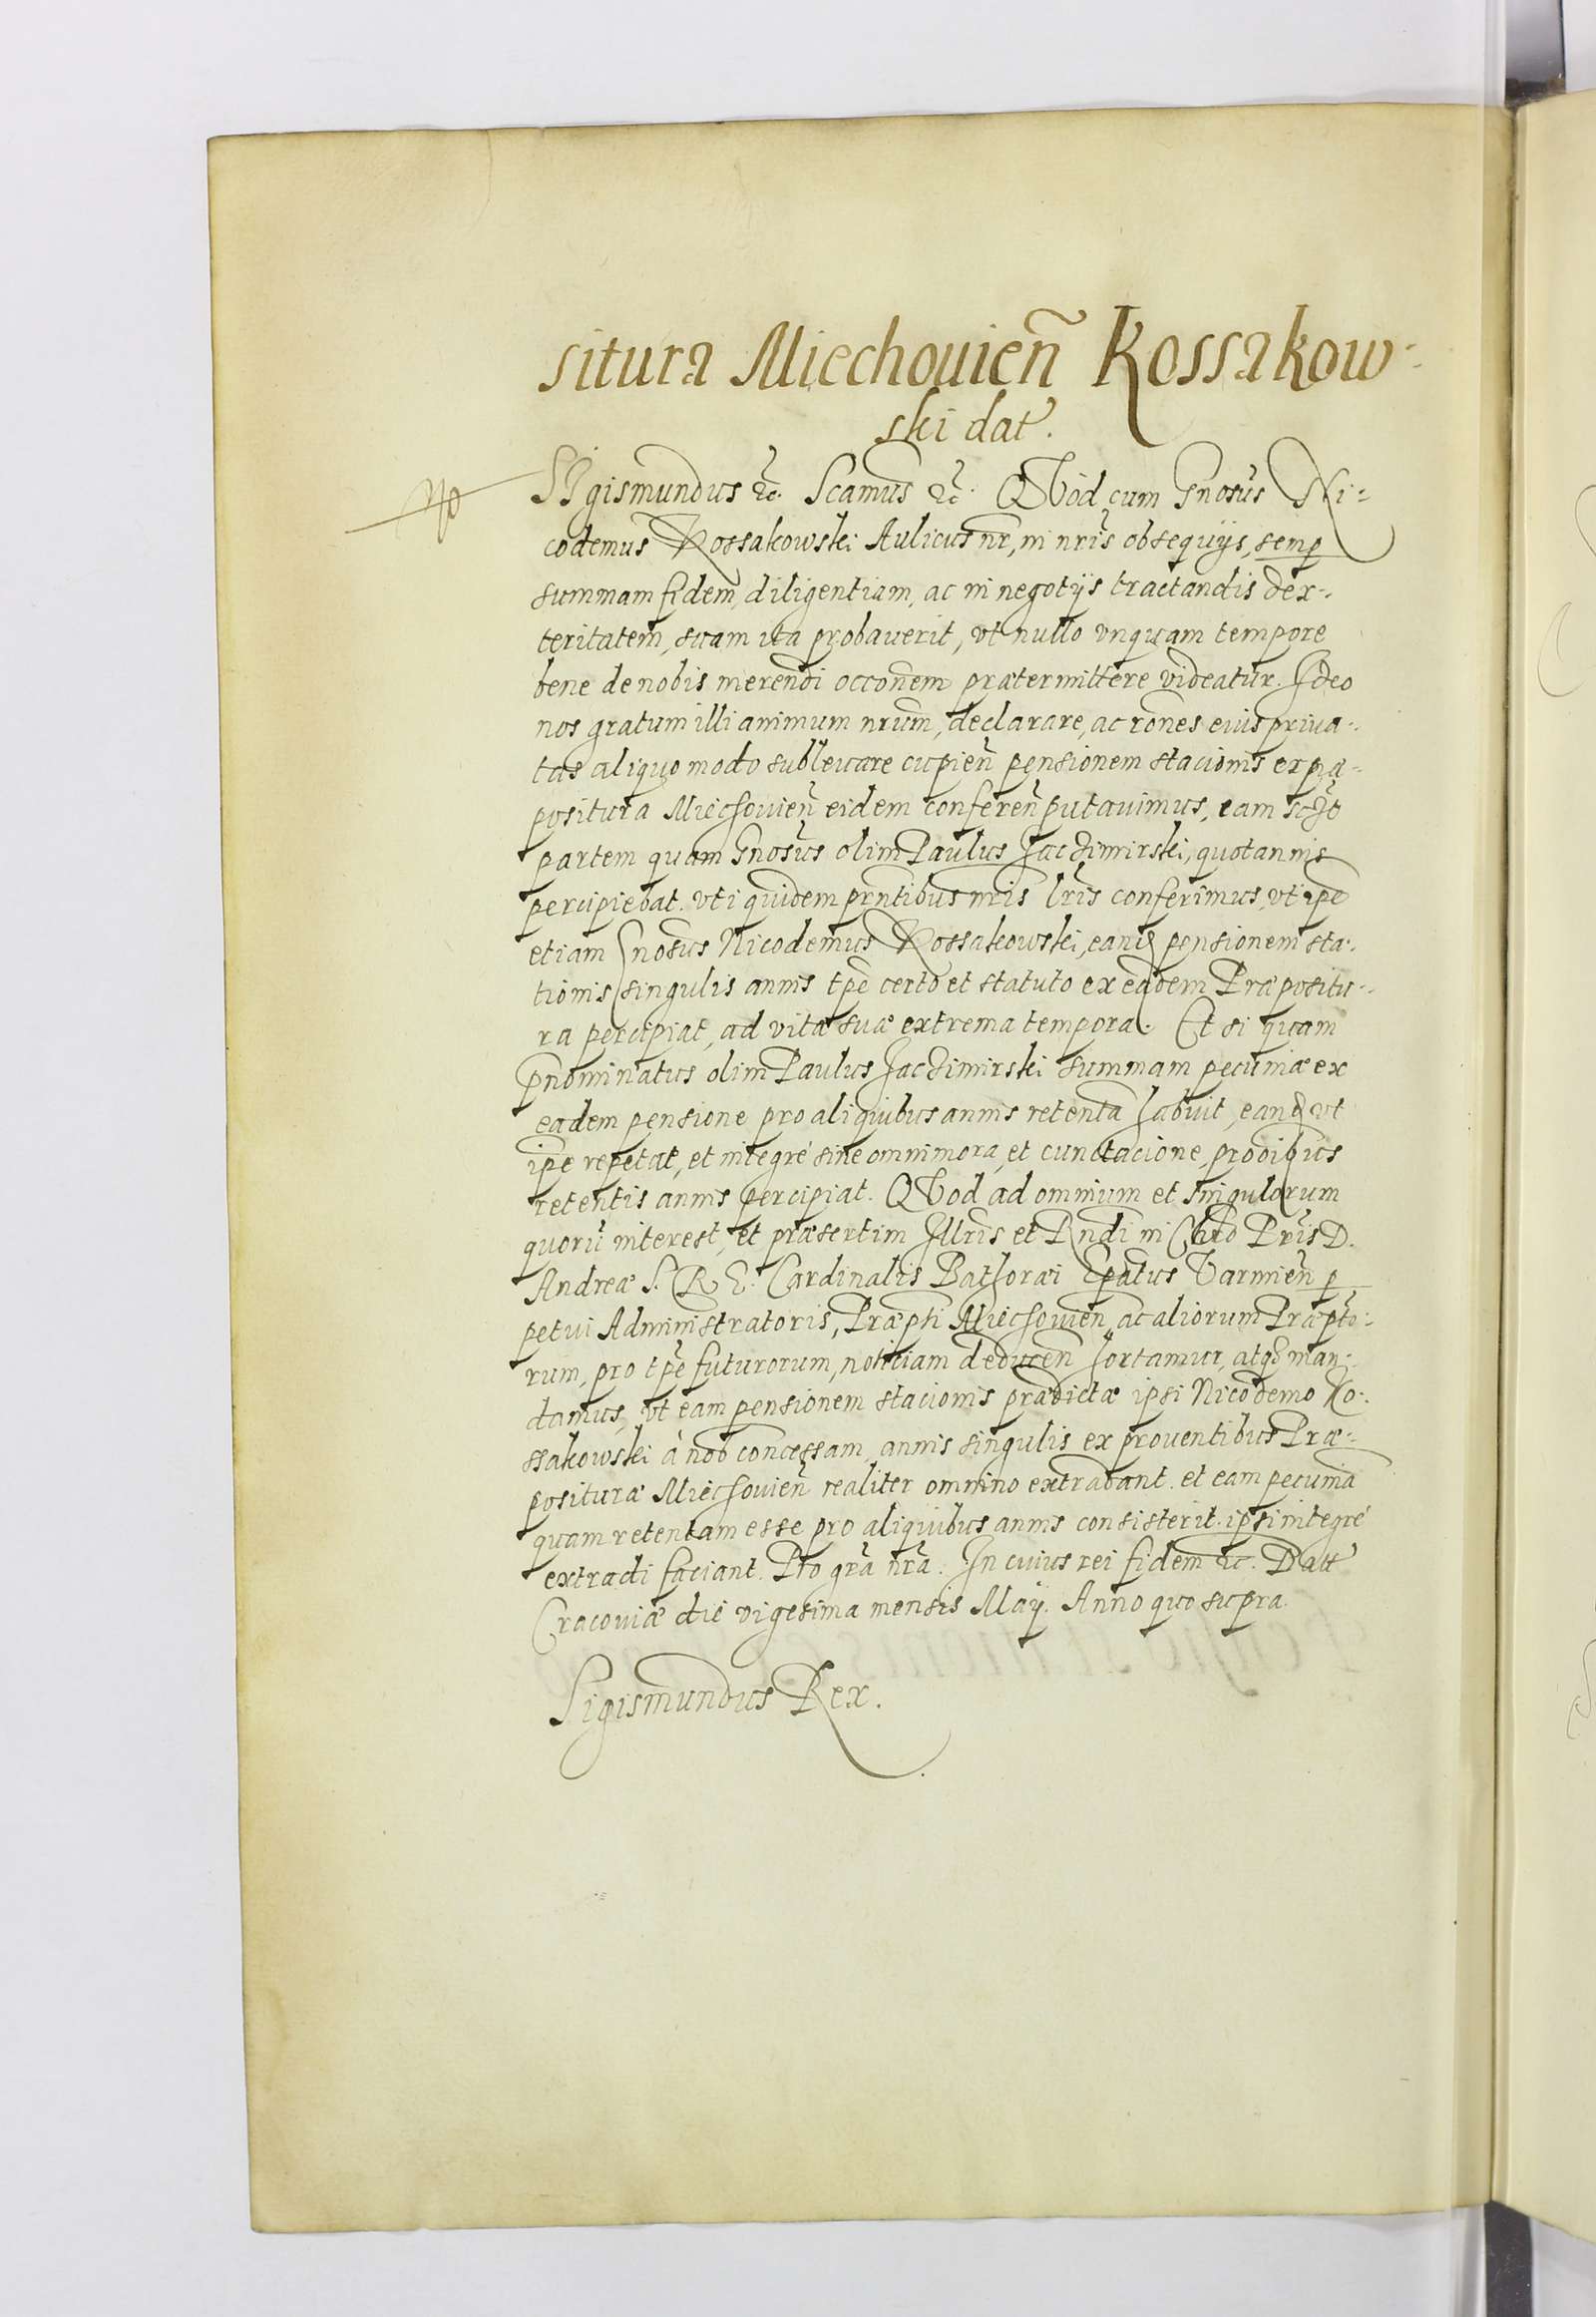 situra Miechouień Kossakow-
ski dat.
SIgismundus etc. Scamus etc. QVod cum Gnosus Ni-
codemus Kossakowski Aulicus nr, in nris obsequijs, semp
summam fidem, diligentiam, ac in negotijs tractandis dex-
teritatem, suam ita probauerit, vt nullo vnquam tempore
bene de nobis merendi occonem prætermittere videatur. Ideo
nos gratum illi animum nrum, declarare, ac rones eius priua-
tas aliquo modo subleuare cupień pensionem stacionis ex præ-
positura Miechouień eidem confereń putauimus, eam scil
partem quam Gnosus olim Paulus Jaczimirski, quotannis
percipiebat. vti quidem pntibus nris lris conferimus, vt ipe
etiam Gnosus Nicodemus Kossakowski, eandem pensionem sta-
tionis singulis annis tpe certo et statuto ex eadem Præpositu-
ra percipiat, ad vitæ suæ extrema tempora. Et si quam
pnominatus olim Paulus Jaczimirski summam pecuniæ ex
eadem pensione pro aliquibus annis retenta habuit, eand vt
ipe repetat, et integré sine omni mora, et cunctacione, pro
retentis annis percipiat. QVod ad omnium et singulorum
quorū interest, et præsertim Illris et Rndi in Chro Pris D.
Andreæ S. R. E. Cardinalis Bathoræi Epatus Varmień p
petui Administratoris, Præpti Miechouień, ac aliorum Præpto-
rum, pro tpe futurorum, notitiam deduceń hortamur, atq man-
damus, vt eam pensionem stacionis prædictæ ipsi Nicodemo Ko-
ssakowski à nob concessam, annis singulis ex prouentibus Præ-
posituræ Miechouień realiter omnino extradant. et eam pecuniā
quam retentam esse pro aliquibus annis consisterit. ipsi integré
extradi faciant. Pro gra nra. In cuius rei fidem etc. Datt
Cracouiæ die vigesima mensis Maij. Anno quo supra.
Sigismundus Rex.